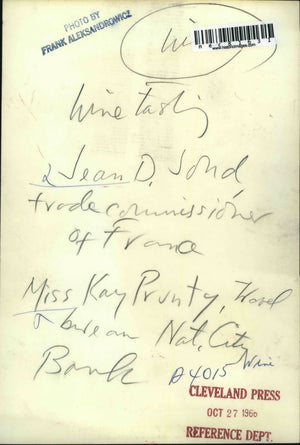 PHOTO BY
FRANK ALEKSANDROWICZ
Wine tasting
Jean D. Jond,
trade commissioner
of France
Miss Kay Prunty, travel
bureau Nat. City
Bank
A4015 Wine
CLEVELAND PRESS
OCT 27 1960
REFERENCE DEPT.